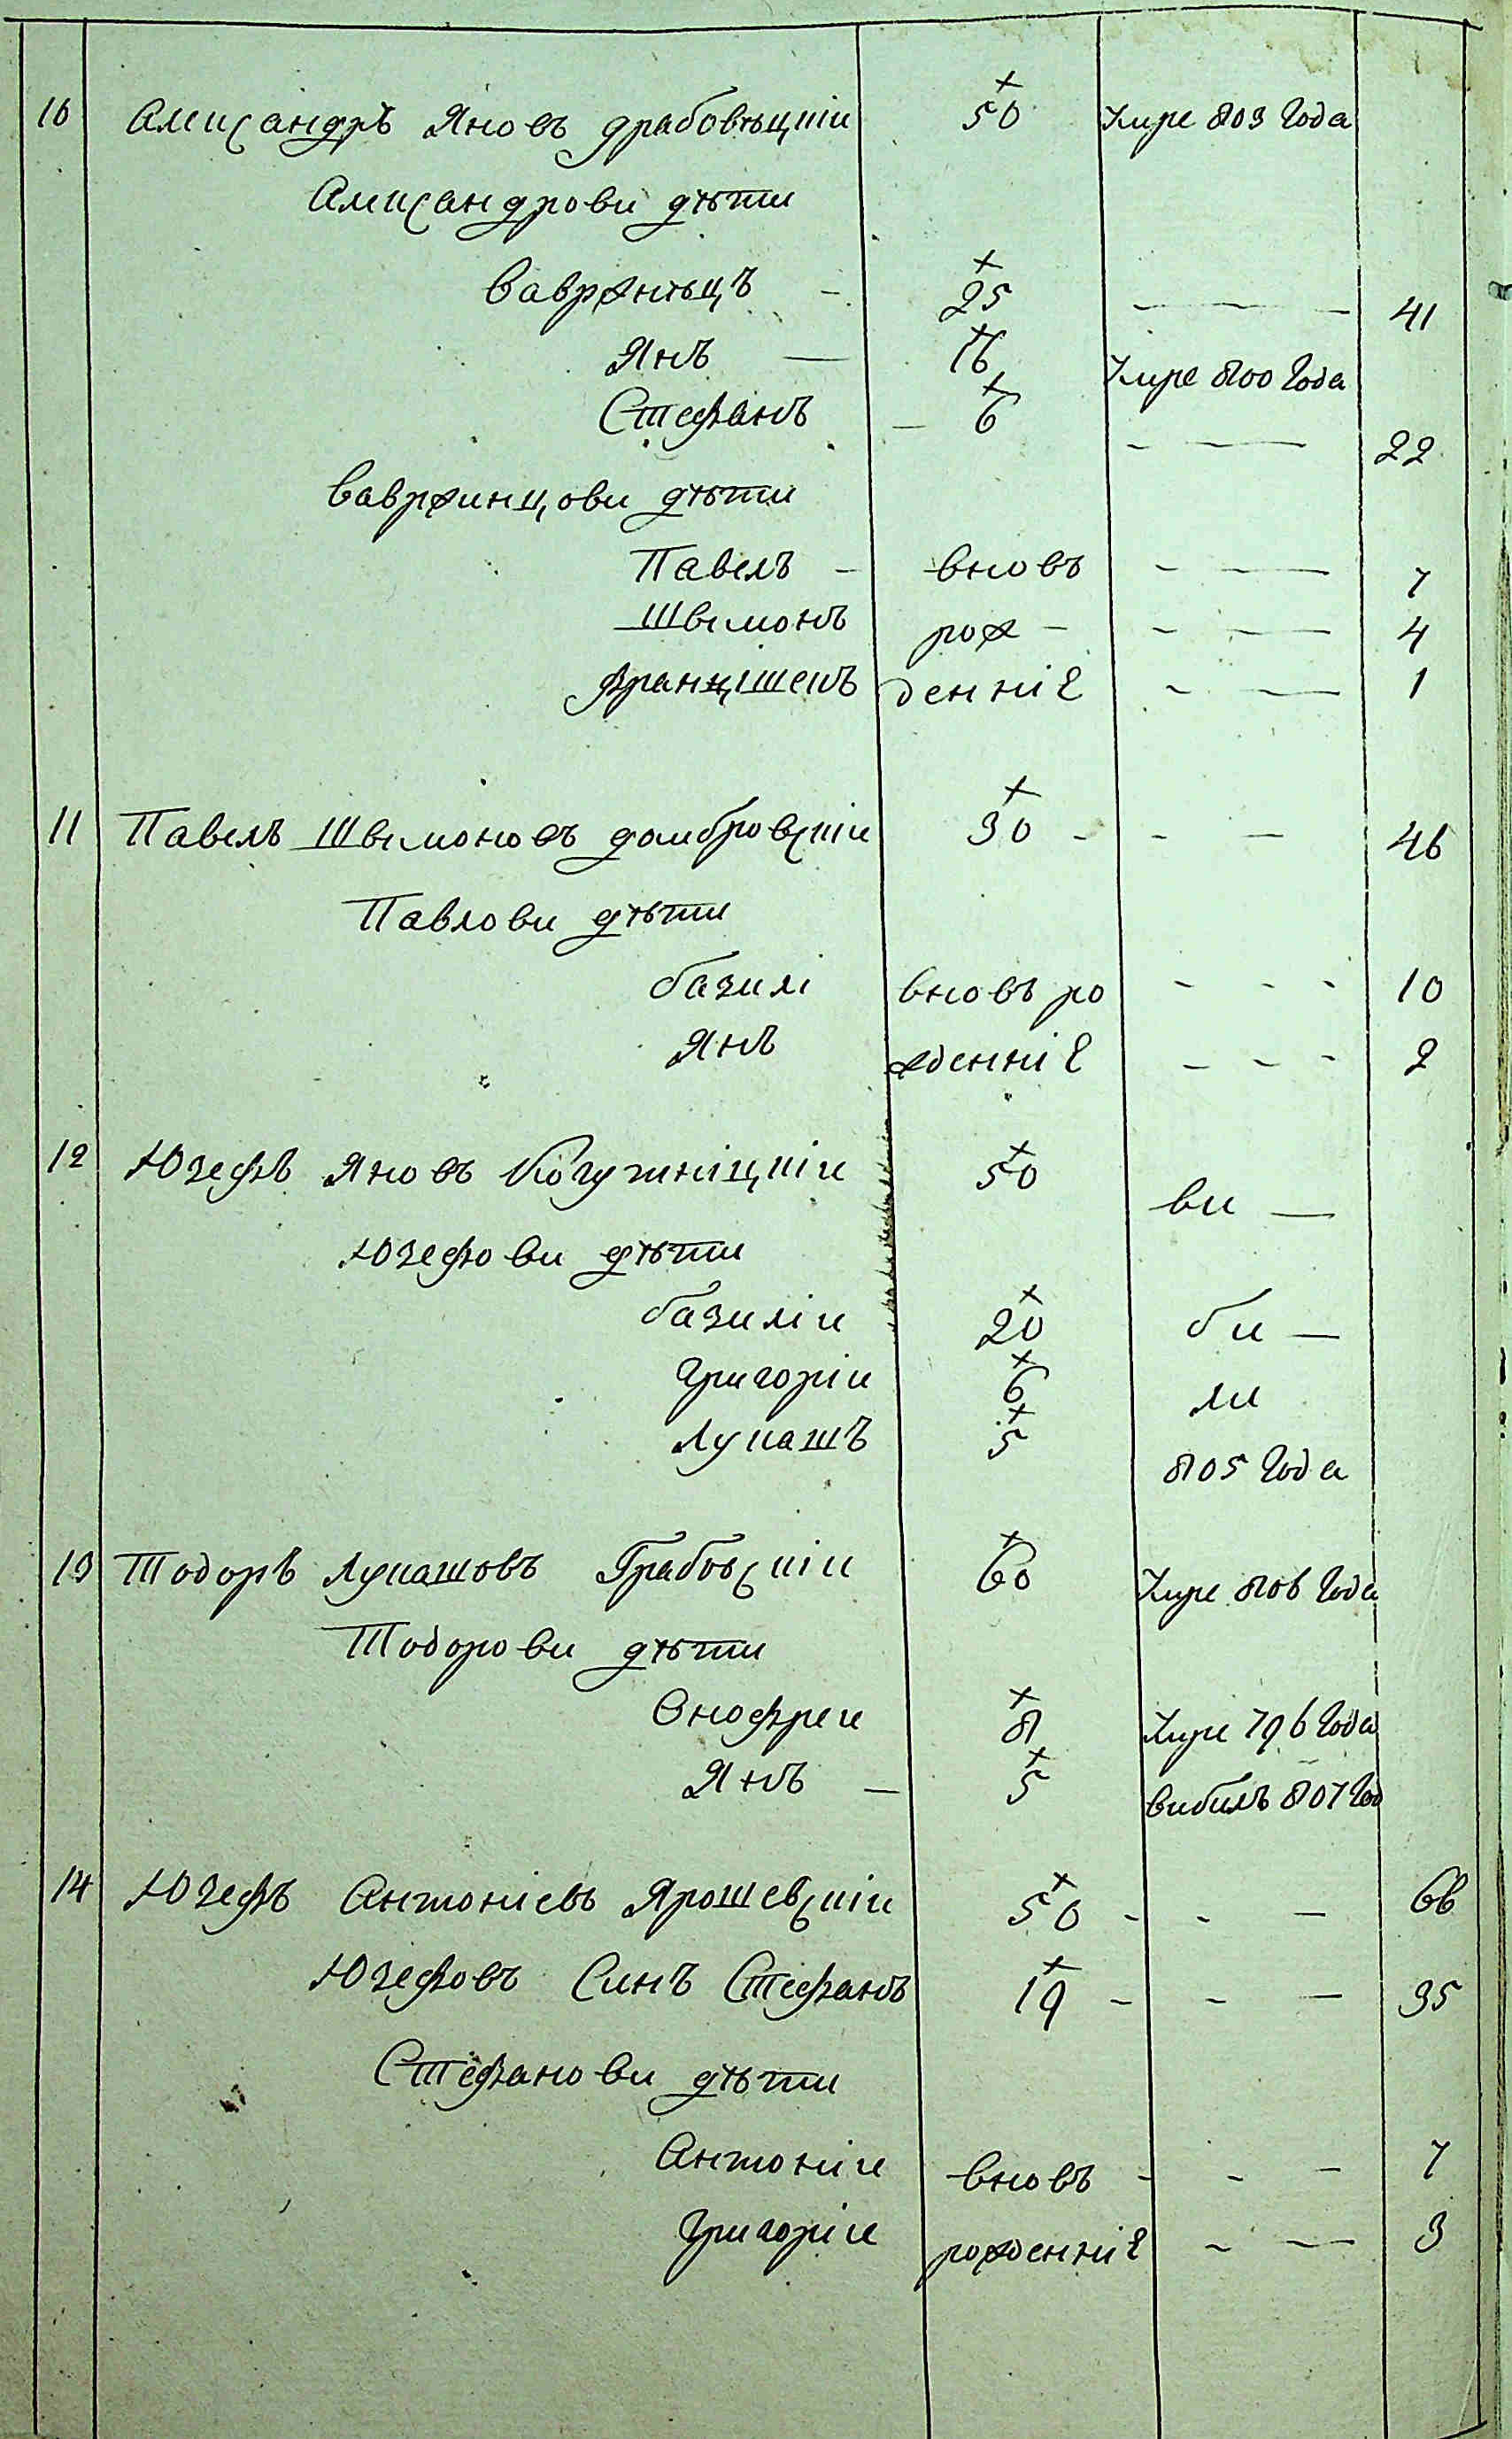 10 Александръ Яновъ драбовъцкіи 50 Умре 803 Года
Александрови дѣти
Ваврженьцъ - 25 - - - 41
Янъ — 16 Умре 800 Года
Стефанъ - 6 - - - 22
Вавржинцови дѣти
Павелъ - вновъ - - - 7
Шымонъ рож - - - - 4
Францішекъ денніе - - 1
11 Павелъ Шымоновъ домбровскіи 30 - - - 46
Павлови дѣти
базилі вновъ ро - - - 10
Янъ жденніе - - - 2
12 Юзефъ Яновъ Когутніцкіи 50 ви —
Юзефови дѣти
базиліи 20 би —
Григоріи 6 ли
Лукашъ 5 805 Года
13 Тодоръ Лукашовъ Грабовскіи 60 Умре 806 Года
Тодорови дѣти
Онофреи 8 Умре 796 Года
Янъ — 5 вибилъ 807 Год
14 Юзефъ Антоніевъ Ярошевскіи 50 - - - 66
Юзефовъ Синъ Стефанъ 19 - - - 35
Стефанови дѣти
Антоніи вновъ - - - 7
Григоріи рожденніе - - 3